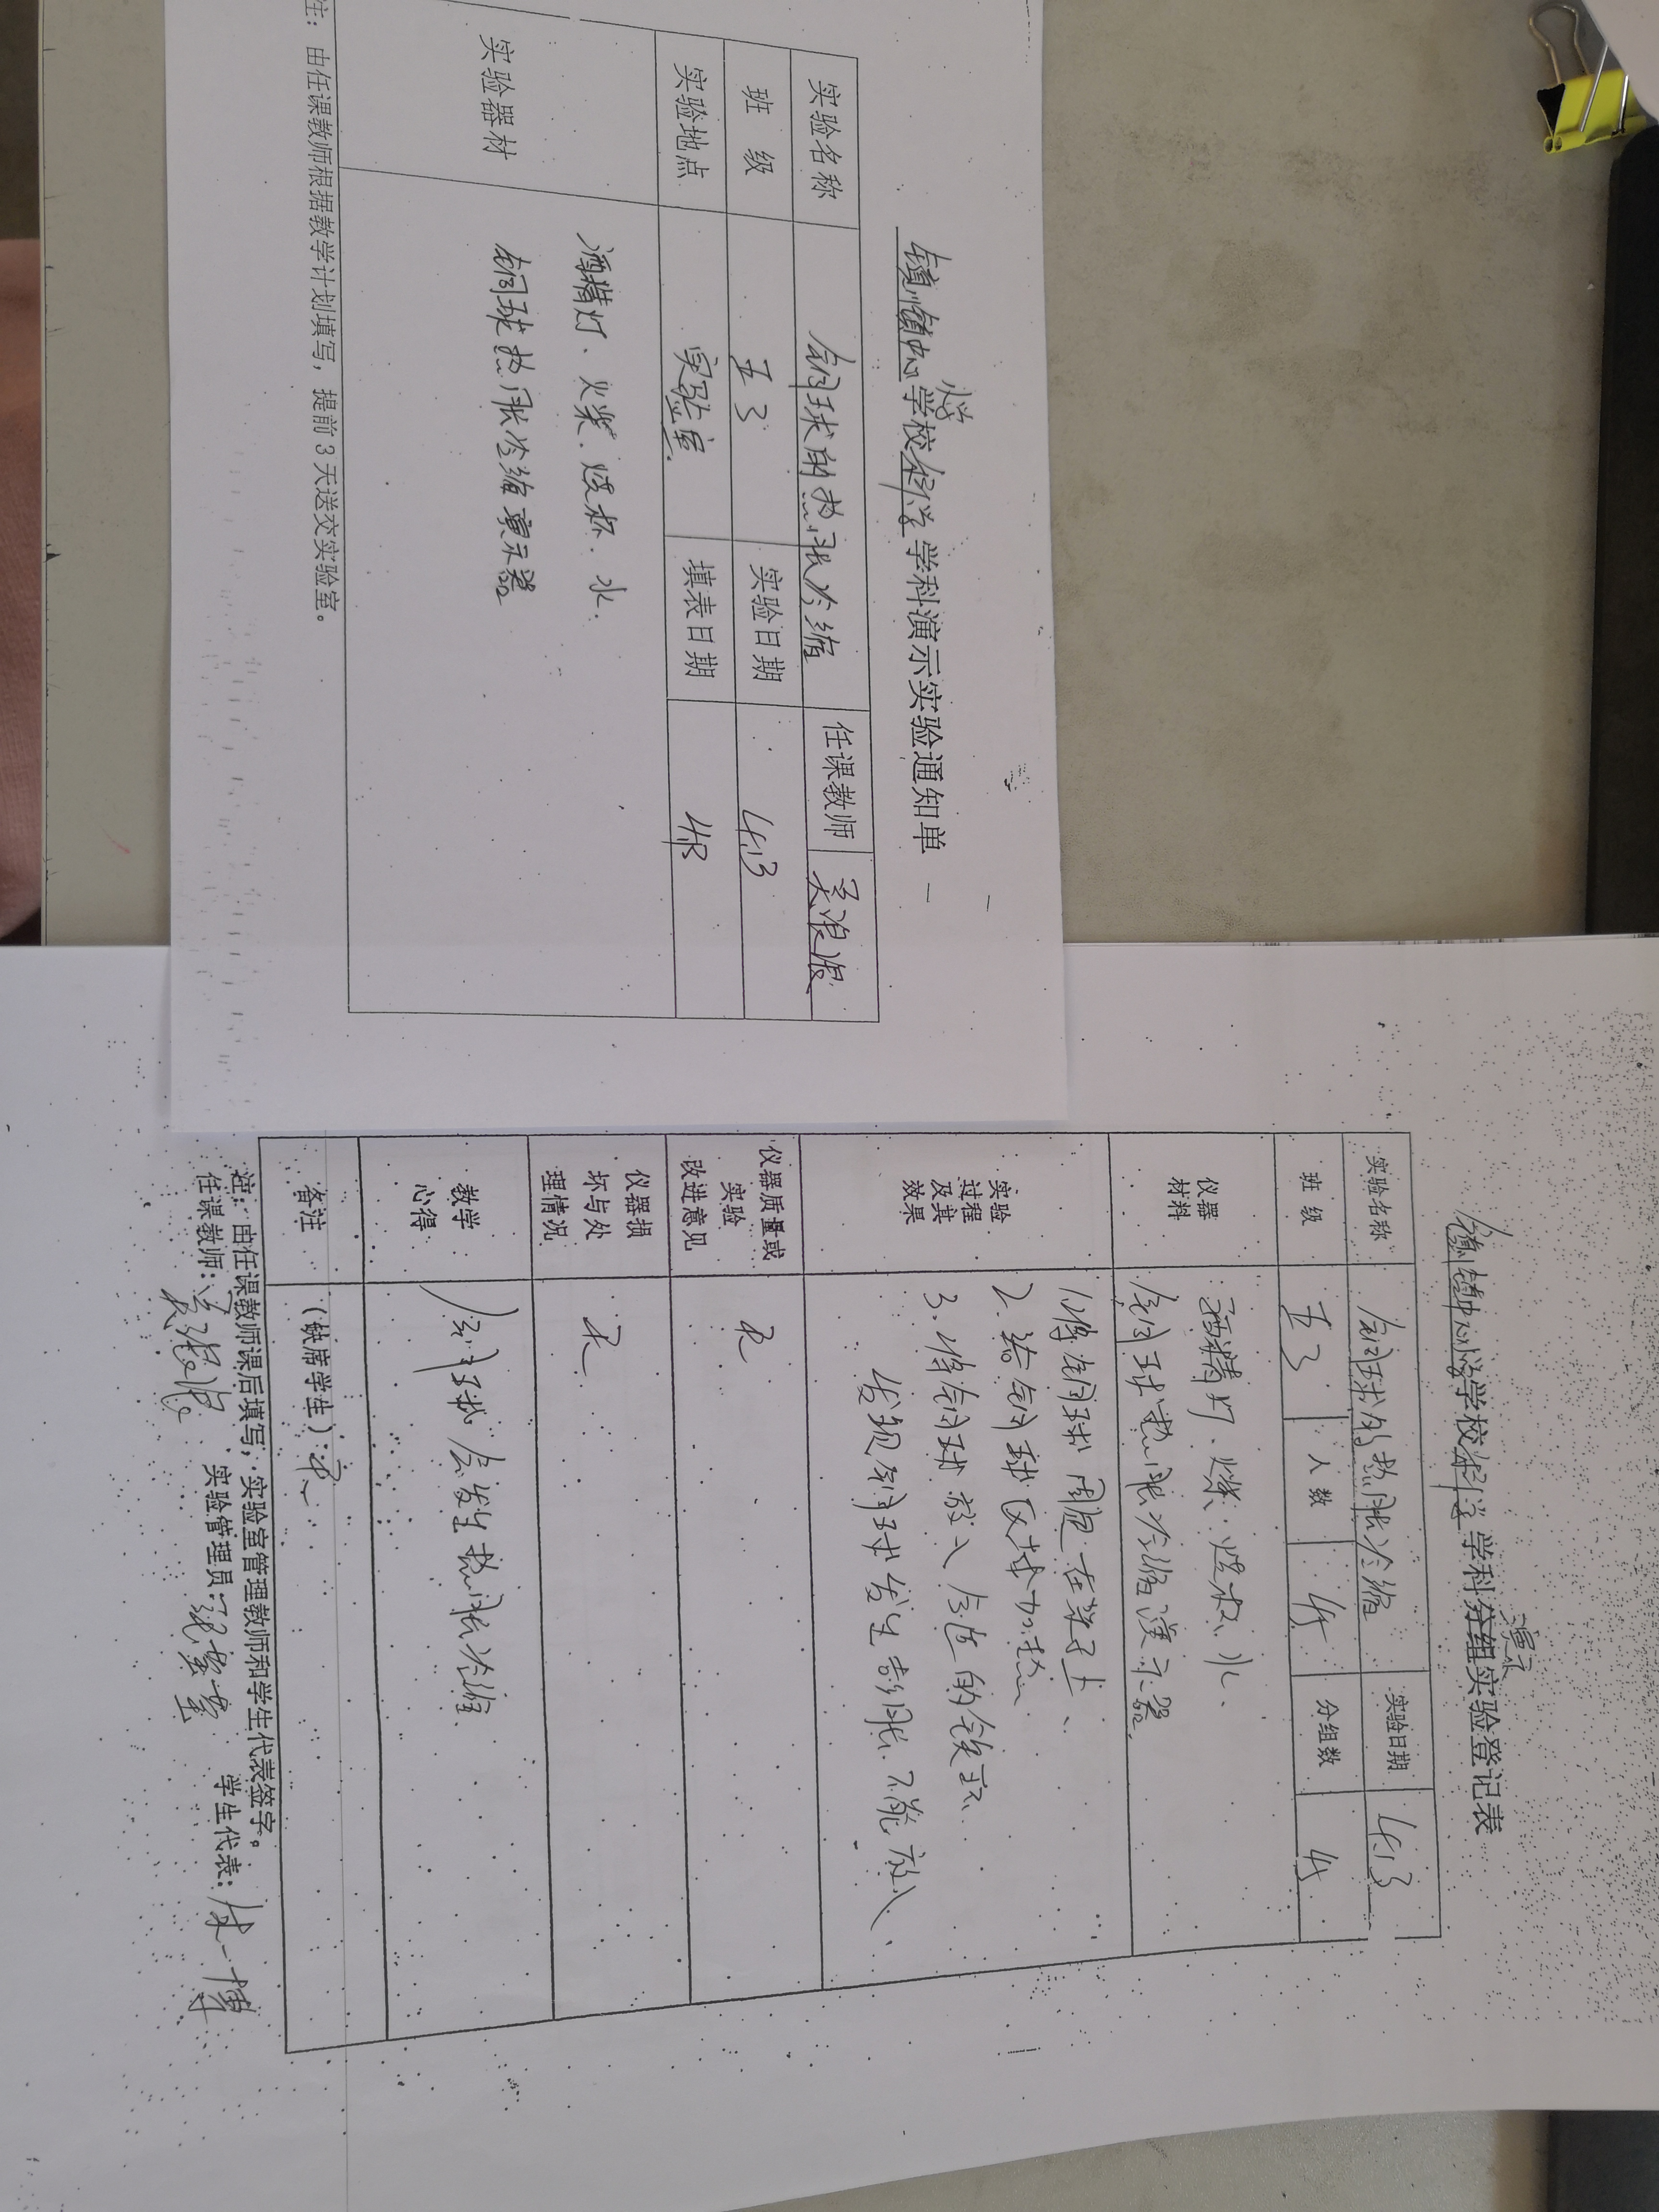 镇中心小学学校科学学科演示实验通知单
实验名称 铜球的热胀冷缩 任课教师
班 级 五3 实验日期 4.13
实验地点 实验室 填表日期 4.13
实验器材 酒精灯、火柴、烧杯、水、
铜球热胀冷缩演示器
注：由任课教师根据教学计划填写，提前3天送交实验室。
镇中心小学学校科学学科分组实验登记表
演示
实验名称 铜球的热胀冷缩 实验日期 4.13
班 级 五3 人数 45 分组数
仪器材料 酒精灯、火柴、烧杯、水、
铜球热胀冷缩演示器
实验过程及其效果 1.将铜球固定在架子上、
2.给铜球区域加热、
3.将铜球放入合适的铁环、
发现铜球发生膨胀、不能放入、
仪器质量或实验改进意见 无
仪器损坏与处理情况 无
教学心得 铜球会发生热胀冷缩
备注 （缺席学生）：无
注：由任课教师课后填写，实验室管理教师和学生代表签字。
任课教师： 实验管理员： 学生代表：